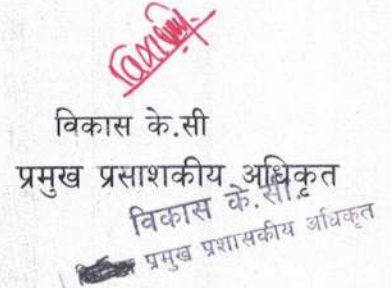 विकास के.सी
प्रमुख प्रसाशकीय अधिकृत
विकास के.सी.
प्रमुख प्रशासकीय अधिकृत